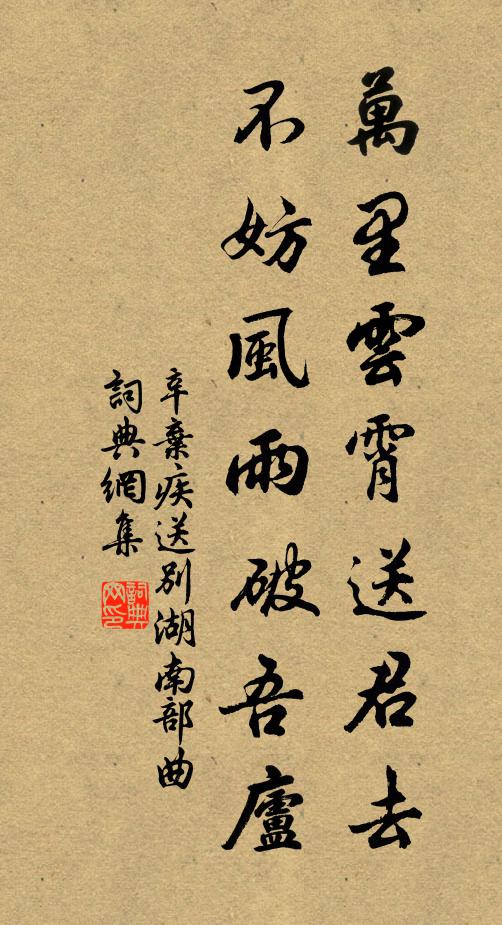 萬里雲霄送君去
不妨風雨破吾廬
辛棄疾送別湖南部曲
詞典網集
詞典网印